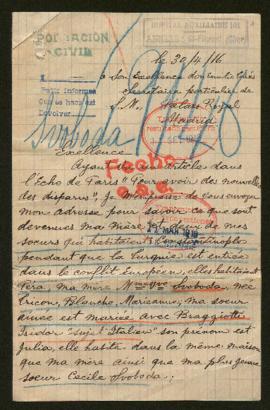 POBLACIÓN
CIVIL
HOPITAL AUXILIAIRE 101
le 30/4/16
a son Excellence
secretaire particulier de
S.M. Palais Royal
Madrid
Svoboda
Excellence
Ayant article dans
l'Echo de Paris "Pour avoir des nouvelles
des disparus". Je de vous envoyer
mon adresse pour savoir ce que sont
devenues ma Mère et de mes
soeurs qui habitaient Constantinople
pendant que la Turquie est entrée
dans le conflit européen, elles habitaient
Péra, ma mère Mme Svoboda, née
Tricon, Blanche, Marianne; ma soeur
ainée est mariée avec Braggiotti
Isidor "sujet Italien" son prénom est
Julia, elle habite dans la même maison
que ma mère ainsi que ma plus jeune
soeur Cecile Svoboda;
Fecho